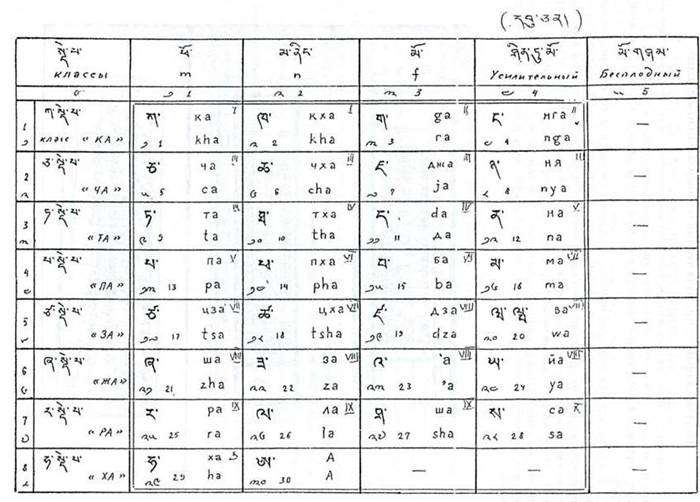 (དབུ་ཅན།)
སྡེ་པ་ ཕོ་ མ་ནིང་ མོ་ ཤིན་ཏུ་མོ་ མོ་གཤམ་
классы m n f Усилительный Бесплодный
༠ ༡ 1 ༢ 2 ༣ 3 ༤ 4 ༥ 5
1 ཀ་སྡེ་པ་ ཀ་ ка I ཁ་ кха I ག་ ga II ང་ нга II —
༡ класс «КА» ༡ 1 kha ༢ 2 kha ༣ 3 га ༤ 4 nga
2 ཅ་སྡེ་པ་ ཅ་ ча III ཆ་ чха III ཇ་ джа III ཉ་ ня III —
༢ «ЧА» ༥ 5 ca ༦ 6 cha ༧ 7 ja ༨ 8 nya
3 ཏ་སྡེ་པ་ ཏ་ та IV ཐ་ тха IV ད་ da IV ན་ на V —
༣ «ТА» ༩ 9 ta ༡༠ 10 tha ༡༡ 11 да ༡༢ 12 na
4 པ་སྡེ་པ་ པ་ па V ཕ་ пха VI བ་ ба VI མ་ ма VII —
༤ «ПА» ༡༣ 13 pa ༡༤ 14 pha ༡༥ 15 ba ༡༦ 16 ma
5 ཙ་སྡེ་པ་ ཙ་ цза VII ཚ་ цха VII ཛ་ дза VIII ཝ་ ཝ་ ва VII —
༥ «ЗА» ༡༧ 17 tsa ༡༨ 18 tsha ༡༩ 19 dza ༢༠ 20 wa
6 ཞ་སྡེ་པ་ ཞ་ ша VIII ཟ་ за VIII འ་ 'а VIII ཡ་ йа VIII —
༦ «ЖА» ༢༡ 21 zha ༢༢ 22 za ༢༣ 23 'a ༢༤ 24 ya
7 ར་སྡེ་པ་ ར་ ра IX ལ་ ла IX ཤ་ ша IX ས་ са X —
༧ «РА» ༢༥ 25 ra ༢༦ 26 la ༢༧ 27 sha ༢༨ 28 sa
8 ཧ་སྡེ་པ་ ཧ་ ха ཨ་ А — — —
༨ «ХА» ༢༩ 29 ha ༣༠ 30 A